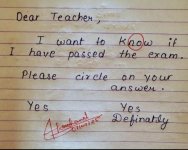 Dear Teacher,
I want to know if
I have passed the exam.
Please circle on your
answer.
Yes Yes
Definatly